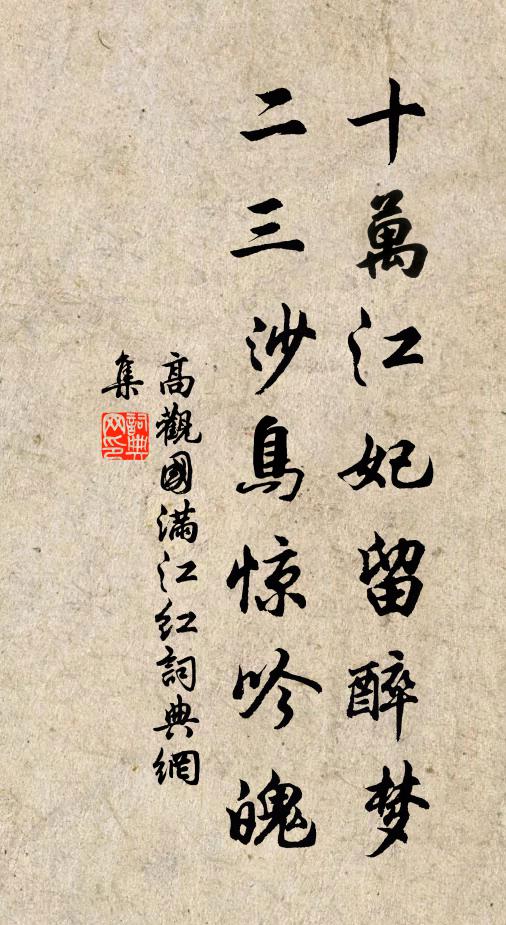 十萬江妃留醉梦
二三沙鳥惊吟魄
高觀國滿江红詞典網
集
詞典网印